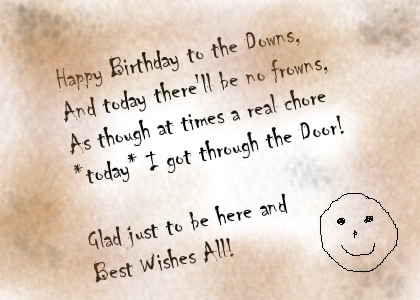 Happy Birthday to the Downs,
And today there'll be no frowns,
As though at times a real chore
*today* I got through the Door!
Glad just to be here and
Best Wishes All!